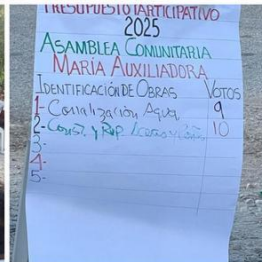 PRESUPUESTO PARTICIPATIVO
2025
ASAMBLEA COMUNITARIA
MARÍA AUXILIADORA
IDENTIFICACIÓN DE OBRAS VOTOS
1- Canalización Agua 9
2- Const. y Rep. Aceras y 10
3-
4-
5-